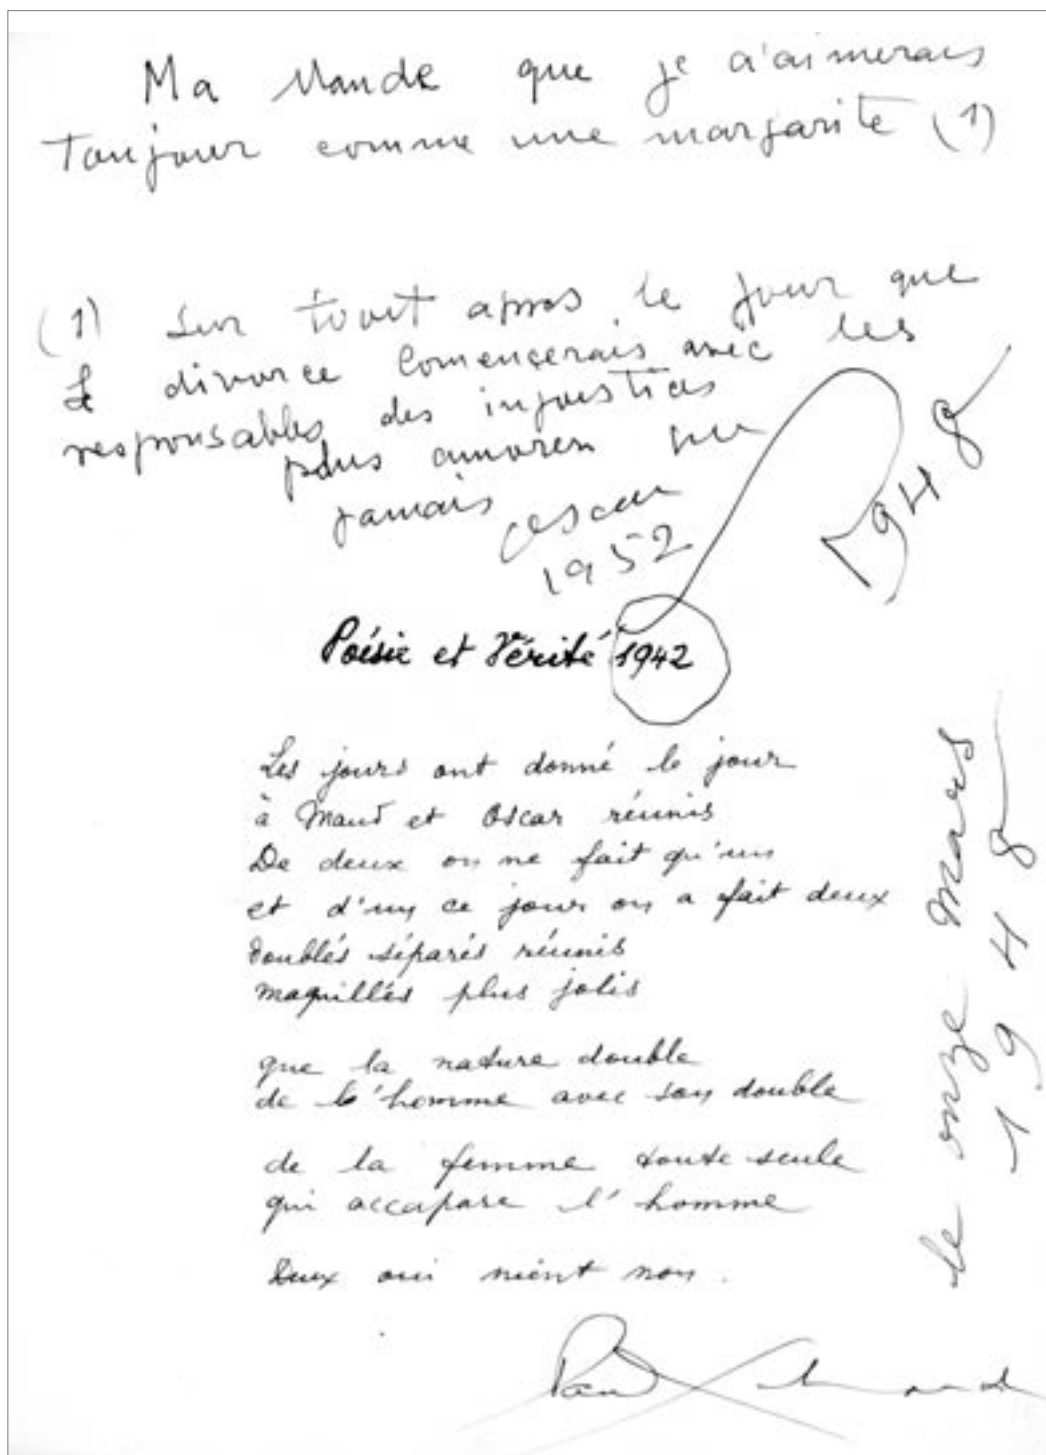 Ma Maude que je a'aimerais
Toujour comme une margarite (1)
(1) Sur tout apres le jour que
le divorce començerais avec les
responsables des injoustices
plus amoren
jamais
Oscar
1952
1948
Poésie et Vérité 1942
Les jours ont donné le jour
à Maud et Oscar réunis
De deux on ne fait qu'un
et d'un ce jour on a fait deux
doublés séparés réunis
maquillés plus jolis
que la nature double
de l'homme avec son double
de la femme toute seule
qui accapare l'homme
Deux oui nient non.
Paul Eluard
le onze Mars
1948